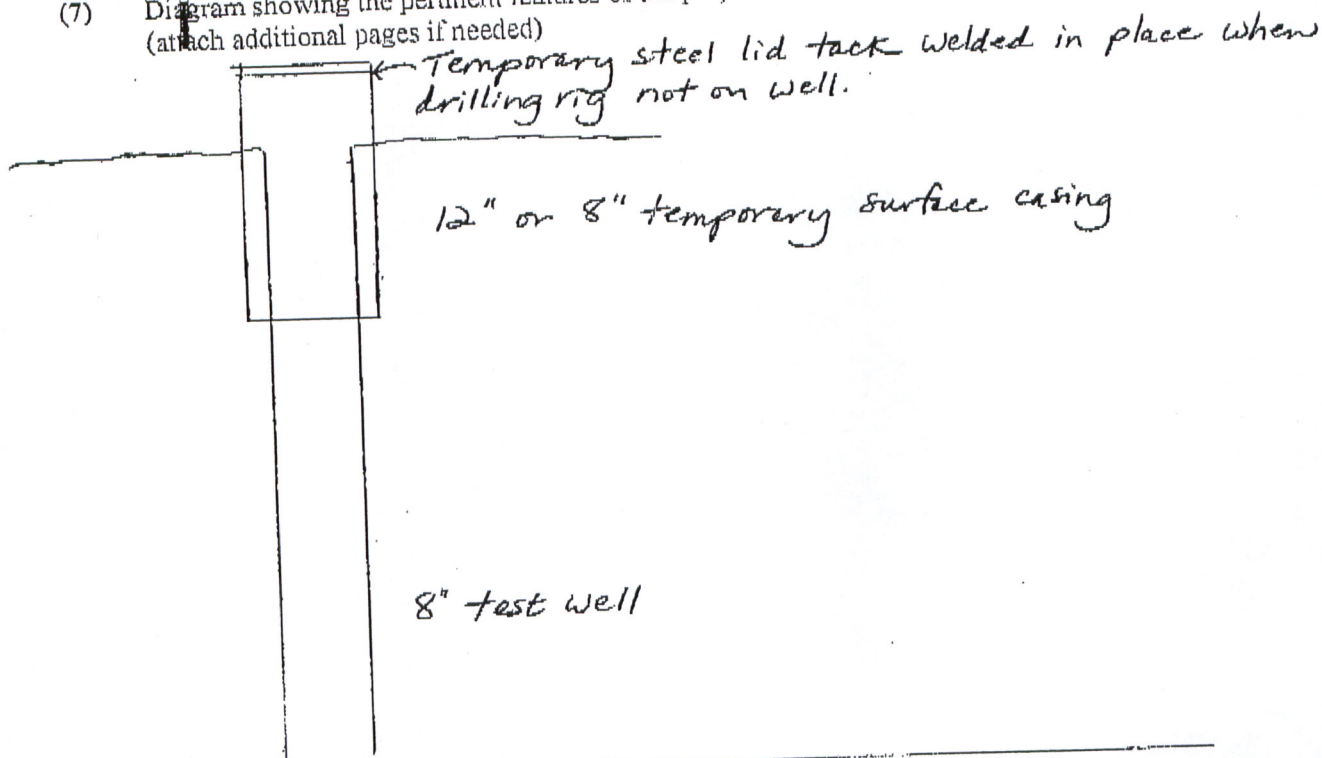 (7) Diagram showing the pertinent features
(attach additional pages if needed)
Temporary steel lid tack welded in place when
drilling rig not on well.
12" or 8" temporary surface casing
8" test well